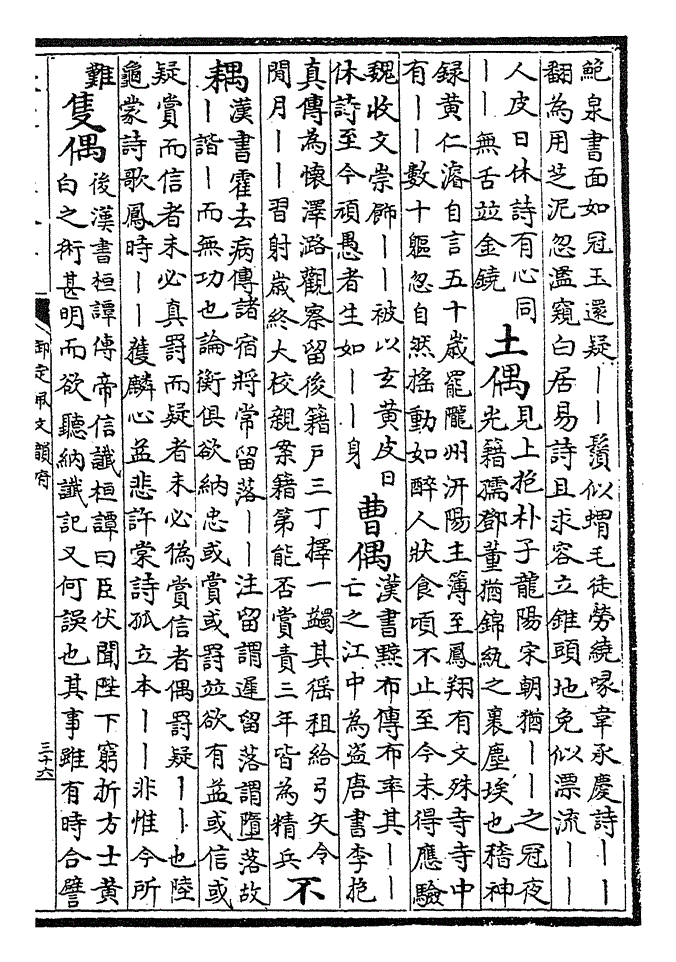 鮑泉書面如冠玉還疑｜｜鬚似蝟毛徒勞繞喙韋承慶詩｜｜
翻為用芝泥忽濫窺白居易詩且求容立錐頭地免似漂流｜｜
人皮日休詩有心同
｜｜無舌竝金鐃
土偶
見上抱朴子龍陽宋朝猶｜｜之冠夜
光籍孺鄧董猶錦紈之裹塵埃也稽神
録黄仁濬自言五十歳罷隴州汧陽主簿至鳳翔有文殊寺寺中
有｜｜數十軀忽自然搖動如醉人狀食頃不止至今未得應驗
魏收文崇飾｜｜被以玄黄皮日
休詩至今頑愚者生如｜｜身
曹偶
漢書黥布傳布率其｜｜
亡之江中為盜唐書李抱
真傳為懷澤潞觀察留後籍戸三丁擇一蠲其徭租給弓矢令
閒月｜｜習射歳終大校親案籍第能否賞責三年皆為精兵
不
耦
漢書霍去病傳諸宿將常留落｜｜注留謂遲留落謂墮落故
｜諧｜而無功也論衡俱欲納忠或賞或罰竝欲有益或信或
疑賞而信者未必真罰而疑者未必偽賞信者偶罰疑｜｜也陸
龜蒙詩歌鳳時｜｜獲麟心益悲許棠詩孤立本｜｜非惟今所
難
隻偶
後漢書桓譚傳帝信讖桓譚曰臣伏聞陛下窮折方士黄
白之術甚明而欲聽納讖記又何誤也其事雖有時合譬
御定佩文韻府
三十六